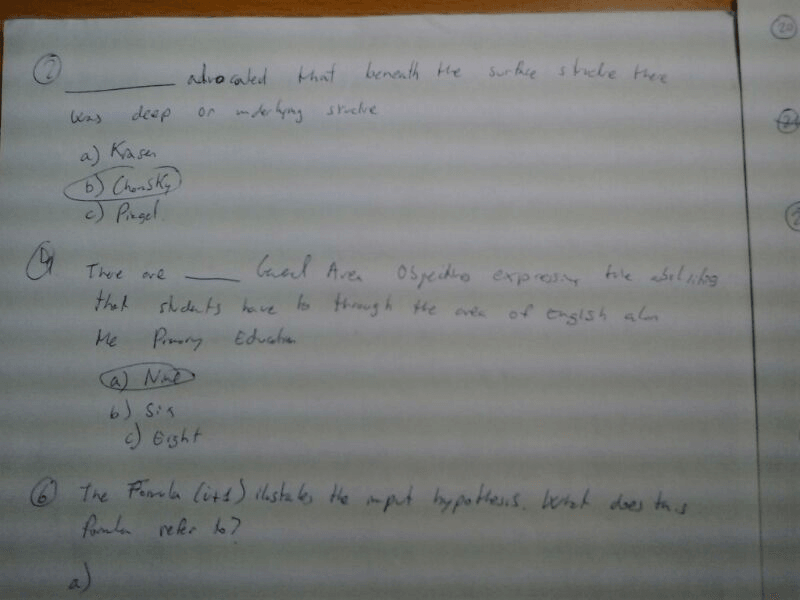 2 ________ advocated that beneath the surface structure there
was deep or underlying structure
a) Krasen
b) Chomsky
c) Piaget.
4 There are ____ General Area Objectives expressing the abilities
that students have to through the area of English along
the Primary Education
a) Nine
b) Six
c) Eight
6 The Formula (i+1) illustrates the input hypothesis. What does this
formula refer to?
a)
20
2